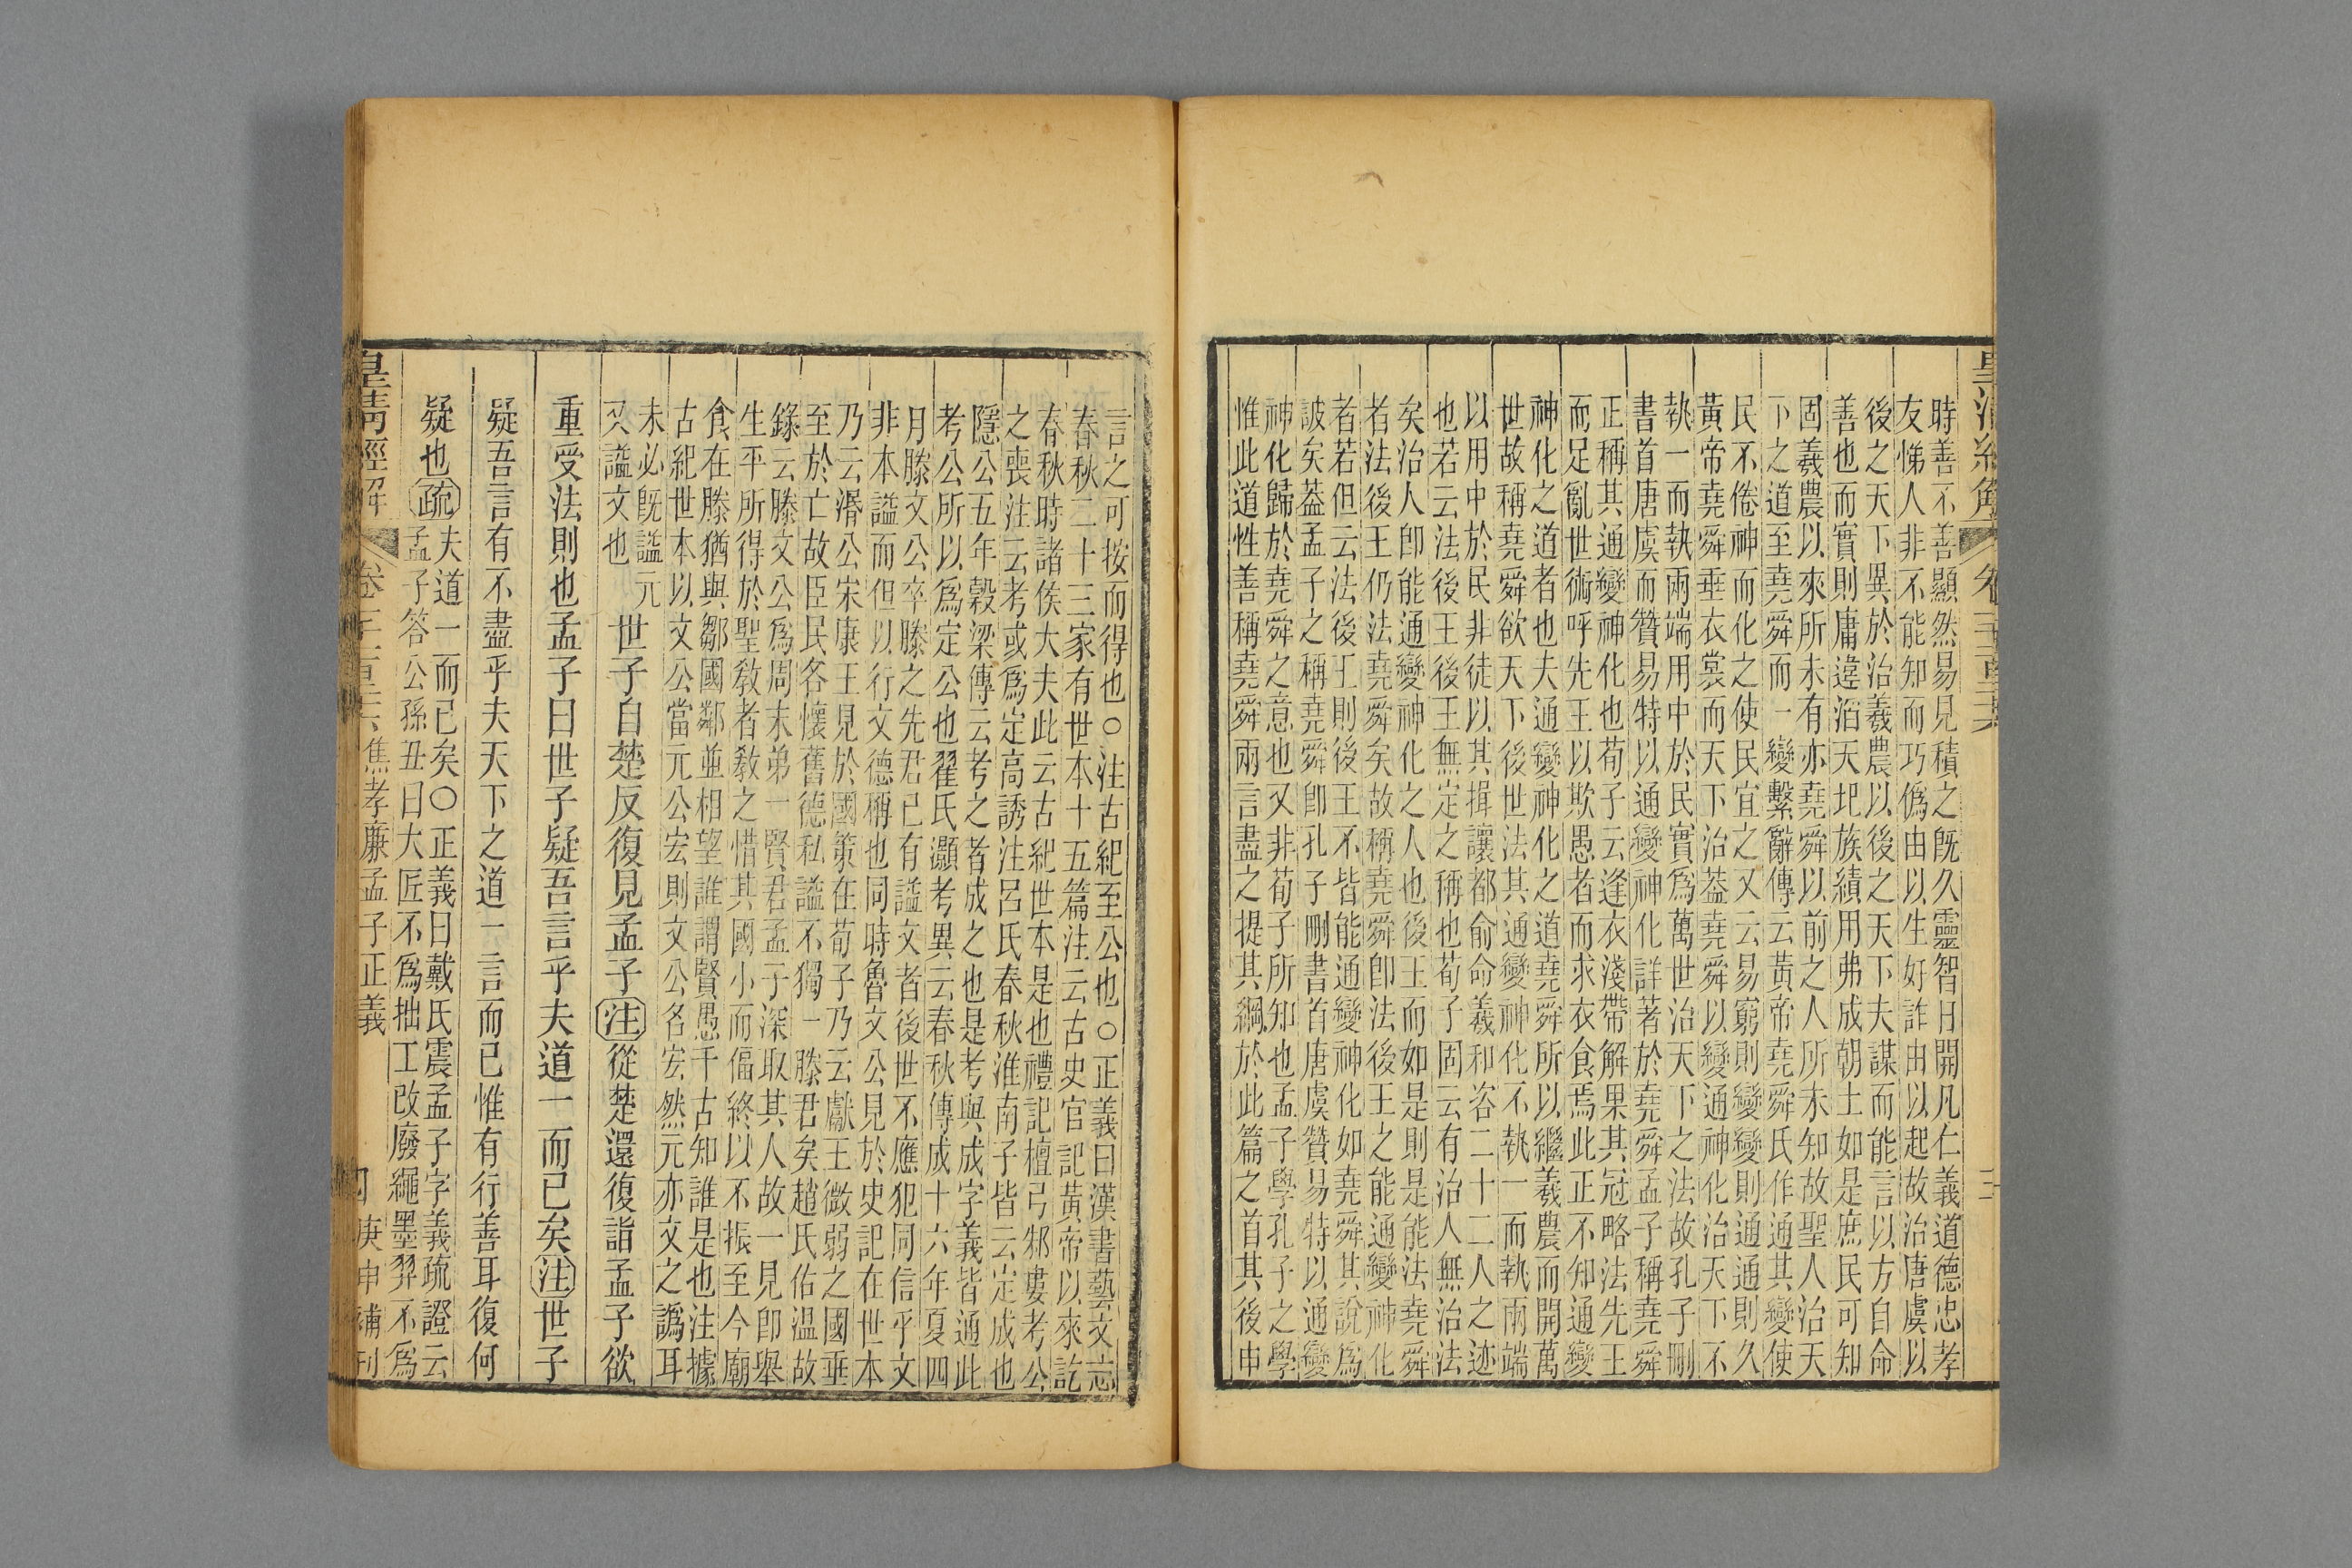 皇清經解 卷
時善不善顯然易見積之旣久靈智日開凡仁義道德忠孝
友悌人非不能知而巧僞由以生好詐由以起故治唐虞以
後之天下異於治羲農以後之天下夫謀而能言以方自命
善也而實則庸違滔天圯族績用弗成朝士如是庶民可知
固羲農以來所未有亦堯舜以前之人所未知故聖人治天
下之道至堯舜而一變繫辭傳云黃帝堯舜氏作通其變使
民不倦神而化之使民宜之又云易窮則變變則通通則久
黃帝堯舜垂衣裳而天下治葢堯舜以變通神化治天下不
執一而執兩端用中於民實爲萬世治天下之法故孔子刪
書首唐虞而贊易特以通變神化詳著於堯舜孟子稱堯舜
正稱其通變神化也荀子云逢衣淺帶解果其冠略法先王
而足亂世術呼先王以欺愚者而求衣食焉此正不知通變
神化之道者也夫通變神化之道堯舜所以繼羲農而開萬
世故稱堯舜欲天下後世法其通變神化不執一而執兩端
以用中於民非徒以其揖讓都俞命羲和咨二十二人之迹
也若云法後王後王無定之稱也荀子固云有治人無治法
矣治人卽能通變神化之人也後王而如是則是能法堯舜
者法後王仍法堯舜矣故稱堯舜卽法後王之能通變神化
者若但云法後王則後王不皆能通變神化如堯舜其說爲
詖矣葢孟子之稱堯舜卽孔子刪書首唐虞贊易特以通變
神化歸於堯舜之意也又非荀子所知也孟子學孔子之學
惟此道性善稱堯舜兩言盡之提其綱於此篇之首其後申
言之可按而得也○注古紀至公也○正義曰漢書藝文志
春秋二十三家有世本十五篇注云古史官記黃帝以來訖
春秋時諸侯大夫此云古紀世本是也禮記檀弓邾婁考公
之喪注云考或爲定高誘注呂氏春秋淮南子皆云定成也
隱公五年穀梁傳云考之者成之也是考與成字義皆通此
考公所以爲定公也翟氏灝考異云春秋傳成十六年夏四
月滕文公卒滕之先君已有謚文者後世不應犯同信乎文
非本謚而但以行文德稱也同時魯文公見於史記在世本
乃云湣公宋康王見於國策在荀子乃云獻王微弱之國垂
至於亡故臣民各懷舊德私謚不獨一滕君矣趙氏佑温故
錄云滕文公爲周末弟一賢君孟子深取其人故一見卽舉
生平所得於聖教者敎之惜其國小而偪終以不振至今廟
食在滕猶與鄒國鄰並相望誰謂賢愚千古知誰是也注據
古紀世本以文公當元公宏則文公名宏然元亦文之譌耳
未必旣謚元
又謚文也
世子自楚反復見孟子注從楚還復詣孟子欲
重受法則也孟子曰世子疑吾言乎夫道一而已矣注世子
疑吾言有不盡乎夫天下之道一言而已惟有行善耳復何
疑也疏
夫道一而已矣○正義曰戴氏震孟子字義疏證云
孟子答公孫丑曰大匠不爲拙工改廢繩墨羿不爲
皇清經解 卷 焦孝廉孟子正義 庚申補刊